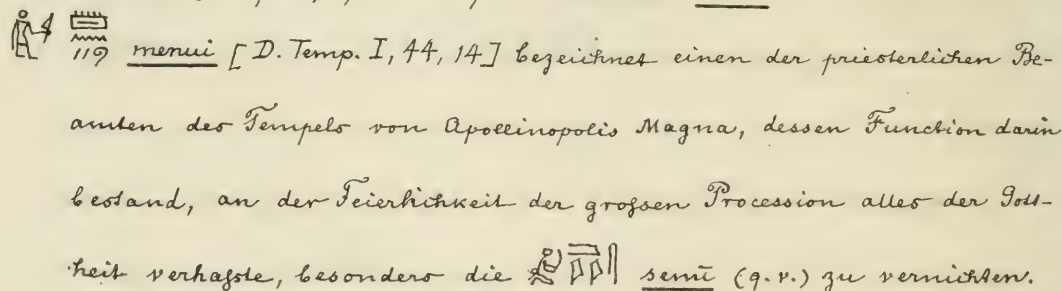 menui [D. Temp. I, 44, 14] bezeichnet einen der priesterlichen Be-
amten des Tempels von Apollinopolis Magna, dessen Function darin
bestand, an der Feierlichkeit der großen Procession alles der Gott-
heit verhaßte, besonders die semū (q. v.) zu vernichten.